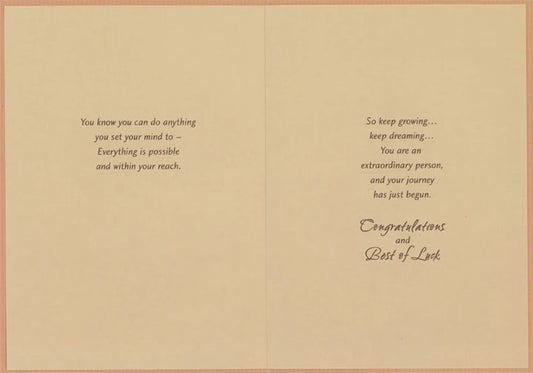 You know you can do anything
you set your mind to –
Everything is possible
and within your reach.
So keep growing…
keep dreaming…
You are an
extraordinary person,
and your journey
has just begun.
Congratulations
and
Best of Luck